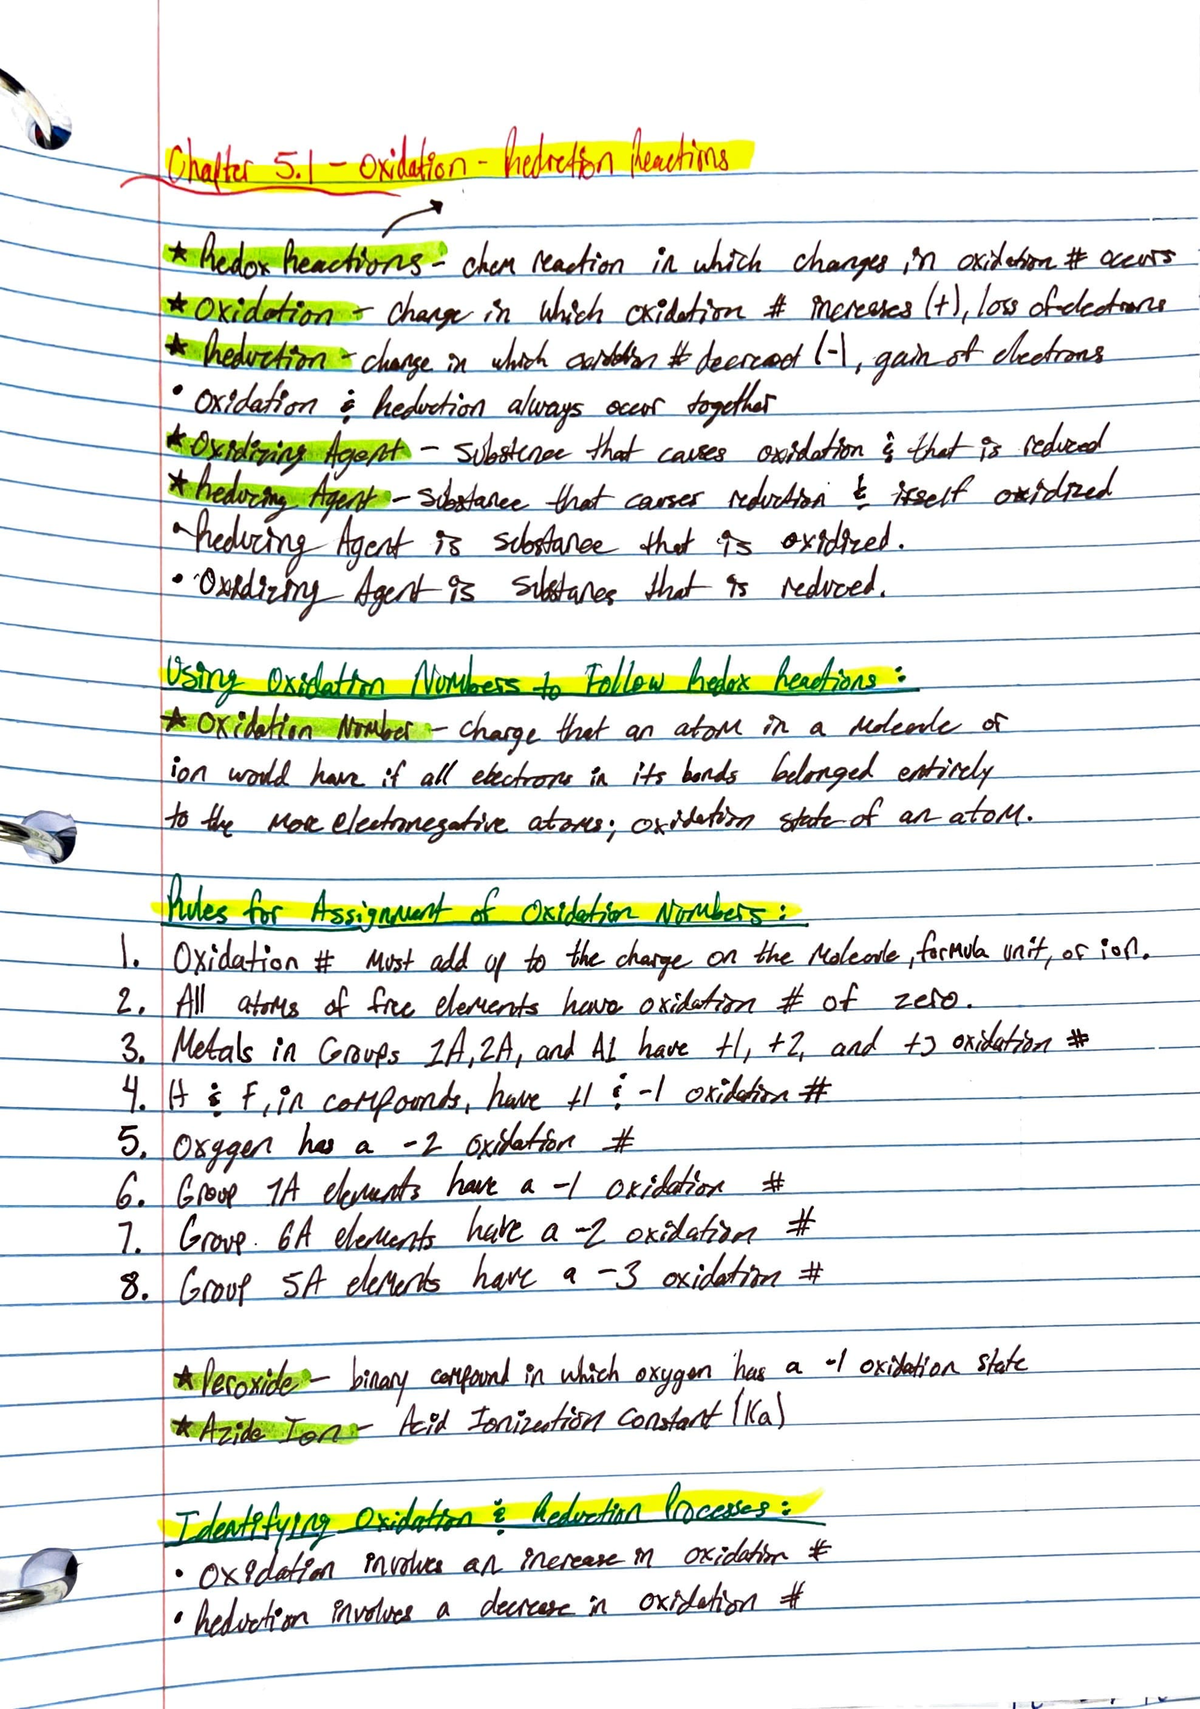 Chapter 5.1 - Oxidation - Reduction Reactions
★ Redox Reactions - chem reaction in which changes in oxidation # occurs
★ Oxidation - change in which oxidation # increases (+), loss of electrons
★ Reduction - change in which oxidation # decreased (-), gain of electrons
• Oxidation & Reduction always occur together
★ Oxidizing Agent - Substance that causes oxidation & that is reduced
★ Reducing Agent - Substance that causes reduction & itself oxidized
• Reducing Agent is substance that is oxidized.
• Oxidizing Agent is substance that is reduced.
Using Oxidation Numbers to Follow Redox Reactions:
★ Oxidation Number - Charge that an atom in a Molecule or
ion would have if all electrons in its bonds belonged entirely
to the more electronegative atoms; oxidation state of an atom.
Rules for Assignment of Oxidation Numbers:
1. Oxidation # Must add up to the charge on the Molecule, formula unit, or ion.
2. All atoms of free elements have oxidation # of zero.
3. Metals in Groups 1A, 2A, and Al have +1, +2, and +3 oxidation #
4. H & F, in compounds, have +1 & -1 oxidation #
5. Oxygen has a -2 oxidation #
6. Group 7A elements have a -1 oxidation #
7. Group. 6A elements have a -2 oxidation #
8. Group 5A elements have a -3 oxidation #
★ Peroxide - binary compound in which oxygen has a -1 oxidation state
★ Azide Ion - Acid Ionization Constant (Ka)
Identifying Oxidation & Reduction Processes:
• Oxidation involves an increase in oxidation #
• Reduction involves a decrease in oxidation #